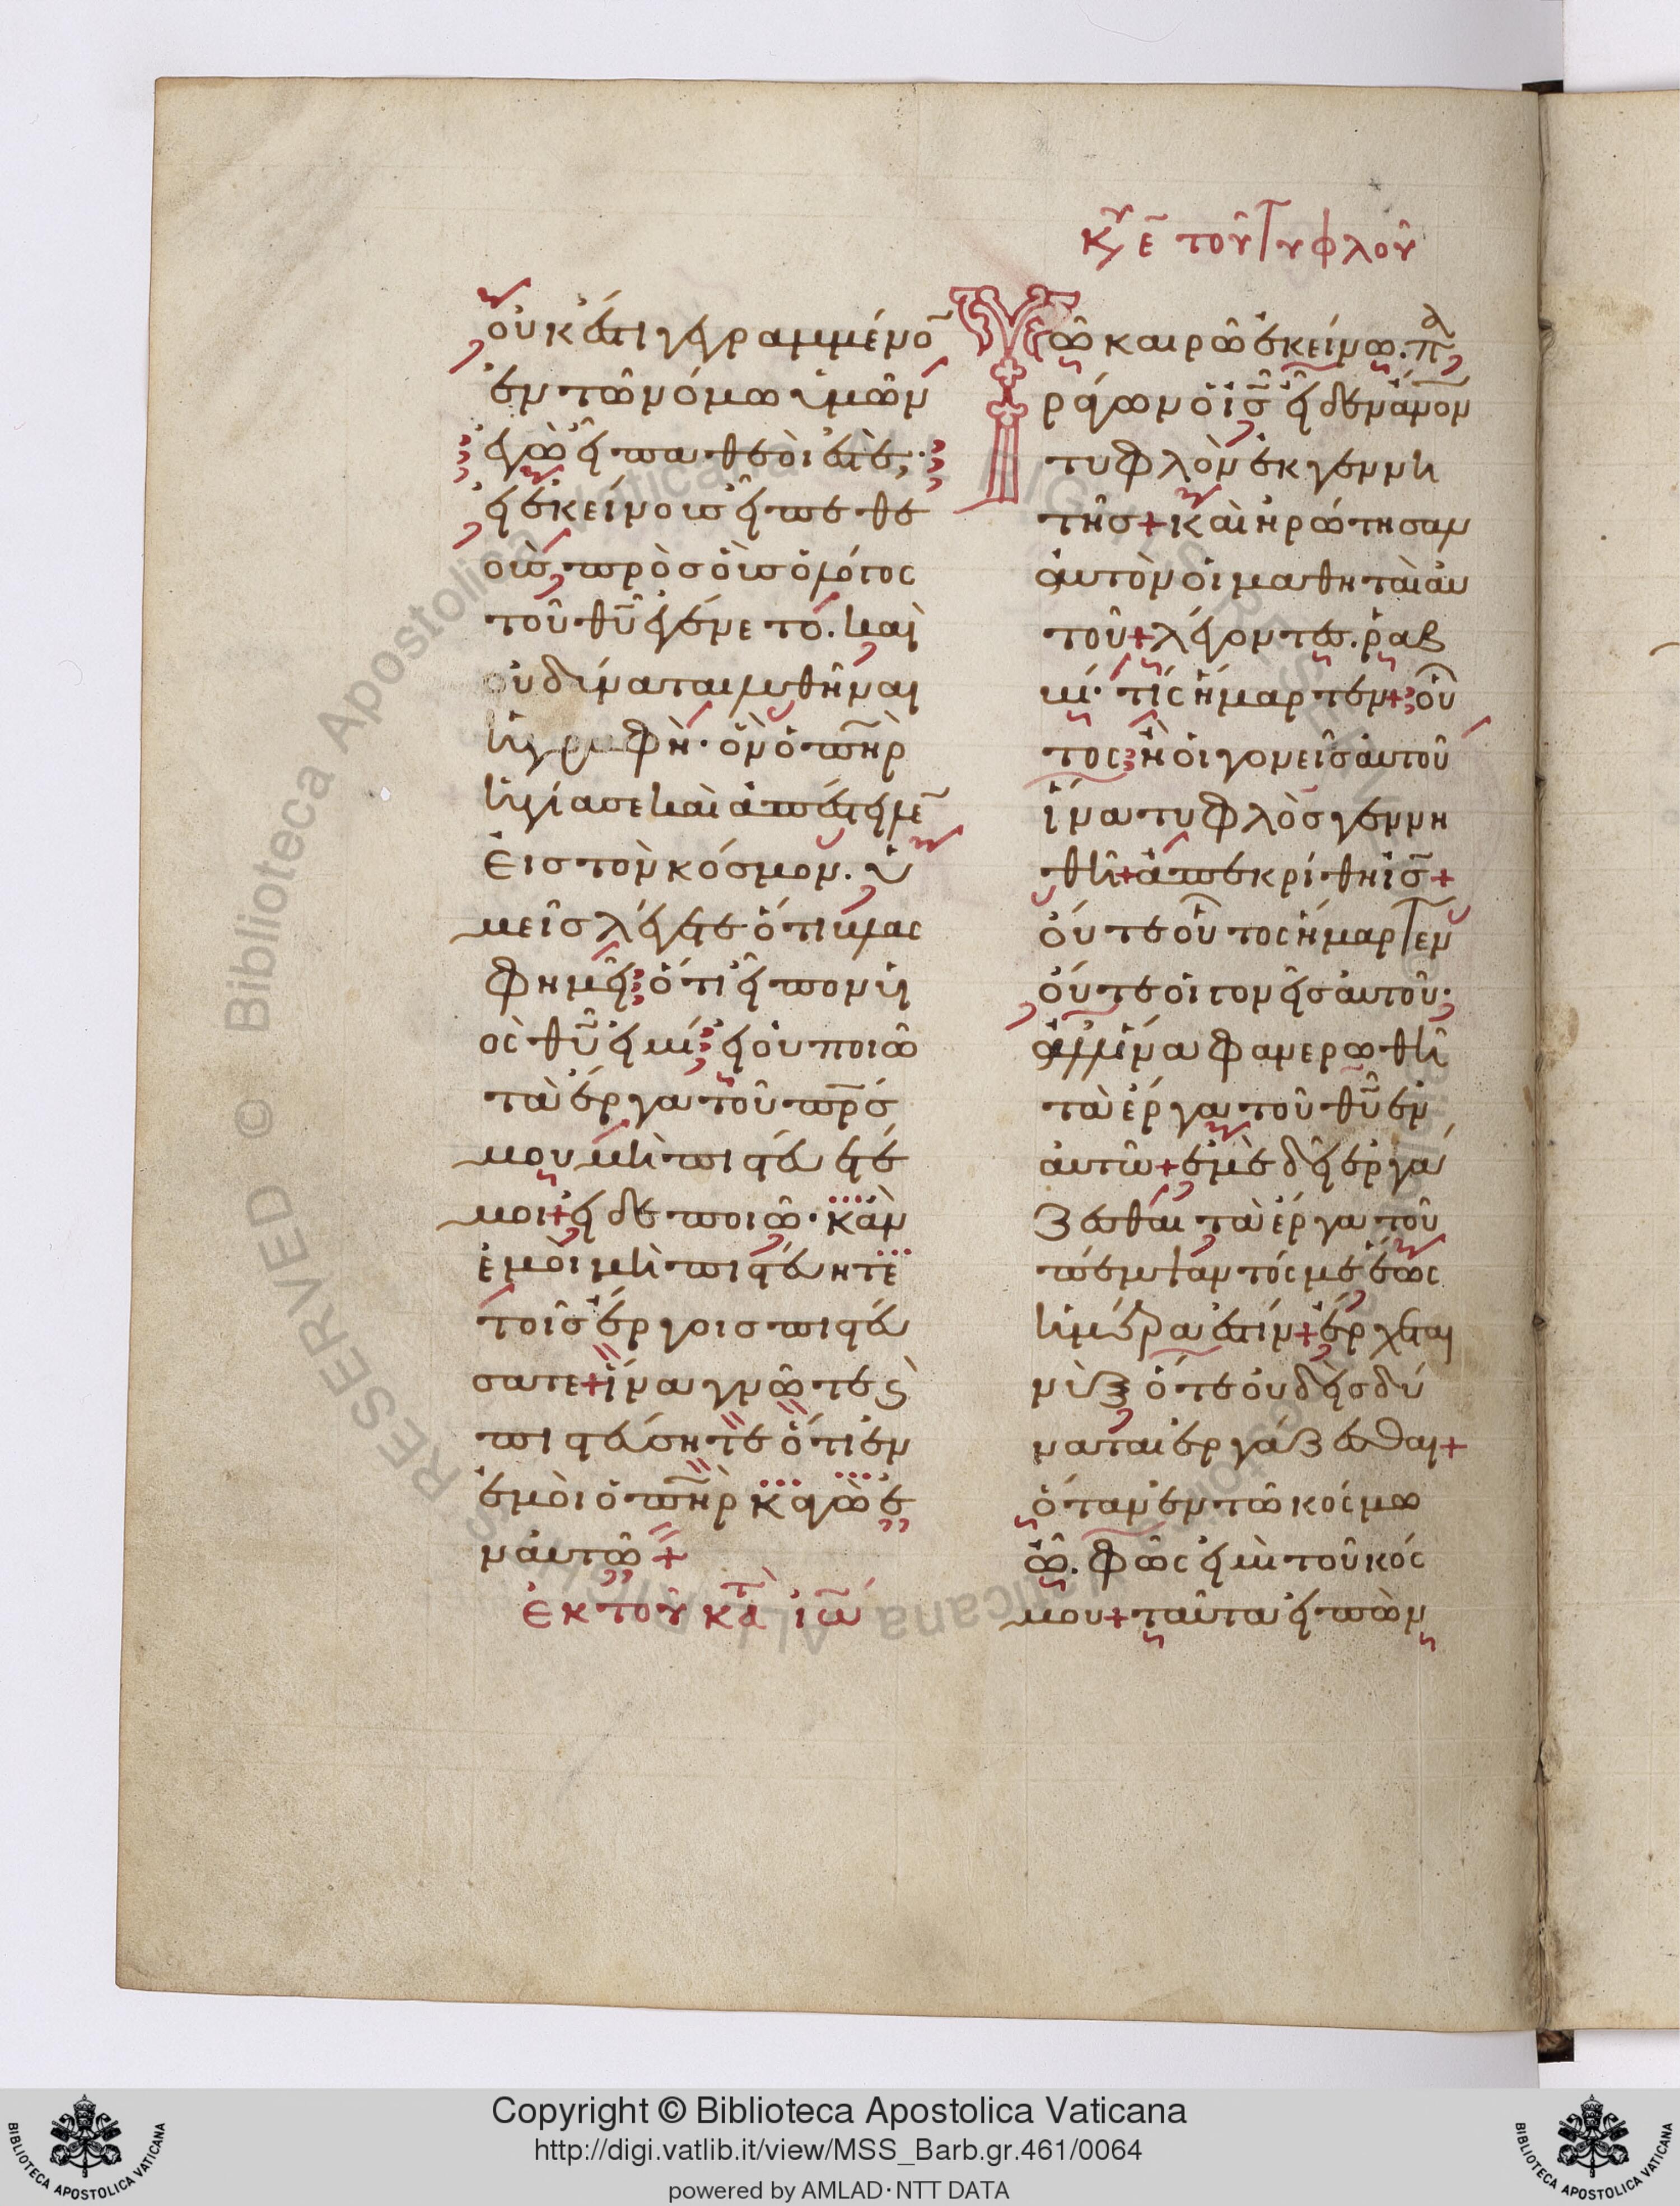 οὐκ ἔστι γεγραμμένο̅
ἐν τῶ νόμω ὑμῶν
ἐγὼ εἶπα θεοί ἐστε;
εἰ ἐκείνους εἶπε θε
οὺς, πρὸς οὓς ὁ λόγος
τοῦ θῦ ἐγένετο. καὶ
οὐ δύναται λυθῆναι
ἡ γραφὴ. ὃν ὁ πηρ
ἡγίασε καὶ ἀπέστειλε̅
εἰς τὸν κόσμον. ὑ
μεῖς λέγετε ὅτι βλας
φημεῖς ὅτι εἶπον υἱ
ὸς θῦ εἰμί εἰ οὐ ποιῶ
τὰ ἔργα τοῦ πρσ
μου μὴ πιστεύετέ
μοι+ εἰ δὲ ποιῶ. κἂν
ἐμοὶ μὴ πιστεύητε
τοῖς ἔργοις πιστεύ
σατε+ ἵνα γνῶτε ϗ
πιστεύσητε ὅτι ἐν
ἐμοὶ ὁ πηρ κἀγὼ ἐ
ν αὐτῶ+
ἐκ τοῦ κατὰ ἰω
κυ ε τοῦ τυφλοῦ
Τῶ καιρῶ ἐκείνω. πα
ράγων ὁ ις εἶδεν ἄνον
τυφλὸν ἐκ γεννη
τῆς+ καὶ ἠρώτησαν
αὐτὸν οἱ μαθηταὶ αὐ
τοῦ+ λέγοντες. ῥαβ
βι. τίς ἥμαρτεν+ οὗ
τος ἢ οἱ γονεῖς αὐτοῦ
ἵνα τυφλὸς γεννη
θῆ+ ἀπεκρίθη ις+
οὔτε οὗτος ἥμαρτεν
οὔτε οἱ γονεῖς αὐτοῦ.
ἀλλ' ἵνα φανερωθῆ
τὰ ἔργα τοῦ θῦ ἐν
αὐτῶ+ ἐμὲ δεῖ ἐργά
ζεσθαι τὰ ἔργα τοῦ
πέμψαντός με ἕως
ἡμέρα ἐστίν+ ἔρχεται
νὺξ ὅτε οὐδεὶς δύ
ναται ἐργάζεσθαι+
ὅταν ἐν τῶ κόσμω
ὦ. φῶς εἰμι τοῦ κόσ
μου+ ταῦτα εἰπὼν
Copyright © Biblioteca Apostolica Vaticana
http://digi.vatlib.it/view/MSS_Barb.gr.461/0064
powered by AMLAD·NTT DATA